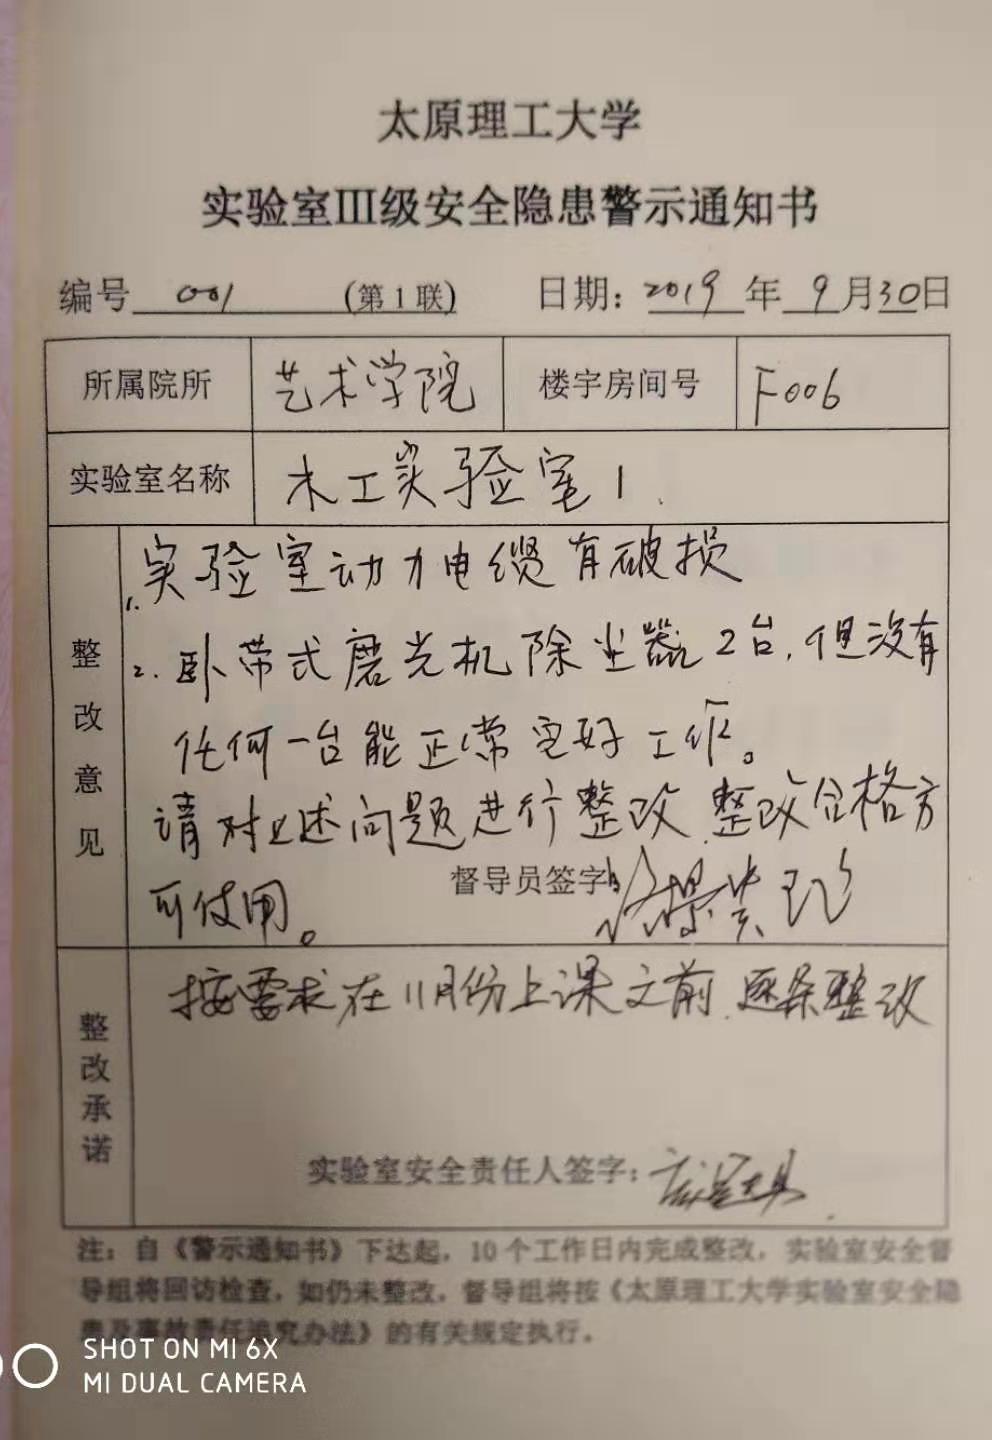 太原理工大学
实验室Ⅲ级安全隐患警示通知书
编号 001 (第1联) 日期: 2019 年 9 月 30 日
所属院所 艺术学院 楼宇房间号 F006
实验室名称 木工实验室1.
整改意见
1. 实验室动力电缆有破损
2. 卧带式磨光机除尘器2台, 但没有
任何一台能正常完好工作。
请对上述问题进行整改 整改合格方
可使用。
督导员签字
整改承诺
按要求在11月份上课之前 逐条整改
实验室安全责任人签字:
注: 自《警示通知书》下达起, 10个工作日内完成整改, 实验室安全督
导组将回访检查, 如仍未整改, 督导组将按《太原理工大学实验室安全隐
患及事故责任追究办法》的有关规定执行.
SHOT ON MI 6X
MI DUAL CAMERA